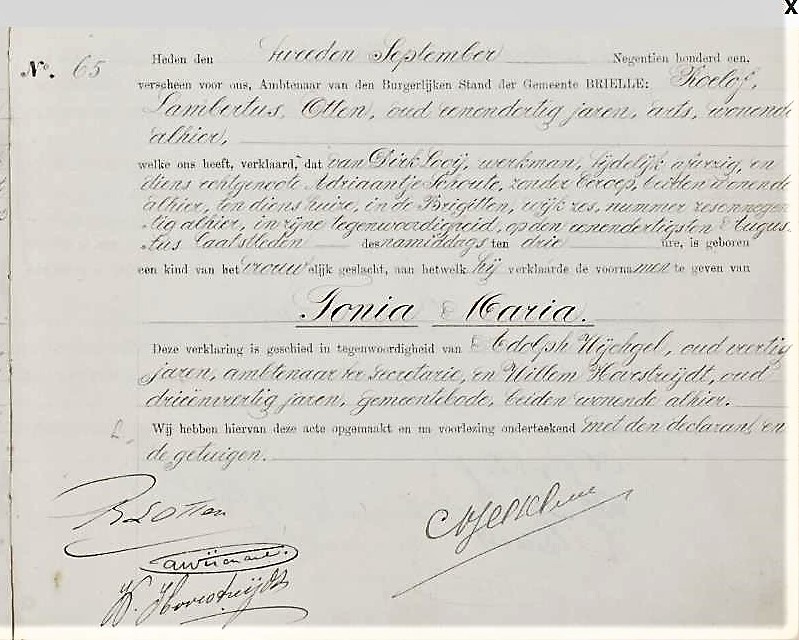 X
No. 65
Heden den tweeden September Negentien honderd een,
verscheen voor ons, Ambtenaar van den Burgerlijken Stand der Gemeente BRIELLE: Roelof,
Lambertus, Otten, oud eenendertig jaren, arts, wonende
alhier,
welke ons heeft, verklaard, dat van Dirk Looij, werkman, tijdelijk afwezig, en
diens echtgenoote Adriaantje Schoute, zonder beroep, beiden wonende
alhier, ten diens huize, in de Brigitten, wijk zes, nummer zesennegen
tig alhier, in zijne tegenwoordigheid, op den eenendertigsten Augus
tus laatstleden des namiddags ten drie ure, is geboren
een kind van het vrouwelijk geslacht, aan hetwelk hij verklaarde de voornamen te geven van
Tonia Maria.
Deze verklaring is geschied in tegenwoordigheid van Adolph, oud veertig
jaren, ambtenaar ter secretarie, en Willem Hovestreijdt, oud
drieënveertig jaren, gemeentebode, beiden wonende alhier.
Wij hebben hiervan deze acte opgemaakt en na voorlezing onderteekend met den declarant en
de getuigen.
R L Otten
W. Hovestreijdt